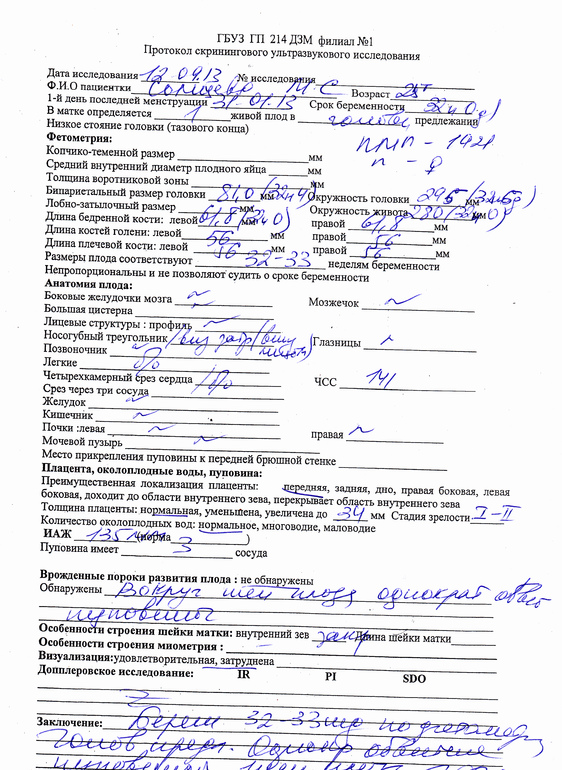 ГБУЗ ГП 214 ДЗМ филиал №1
Протокол скринингового ультразвукового исследования
Дата исследования 12.09.13 № исследования
Ф.И.О пациентки М. С Возраст
1-й день последней менструации 31.01.13 Срок беременности
В матке определяется 1 живой плод в головном предлежании
Низкое стояние головки (тазового конца)
ПМП - 1921
Фетометрия:
п - ♀
Копчико-теменной размер мм
Средний внутренний диаметр плодного яйца мм
Толщина воротниковой зоны мм
Бипариетальный размер головки 81,0 мм Окружность головки 295 мм
Лобно-затылочный размер мм Окружность живота 280 мм
Длина бедренной кости: левой 61,8 мм правой 61,8 мм
Длина костей голени: левой 56 мм правой 56 мм
Длина плечевой кости: левой 56 мм правой 56 мм
Размеры плода соответствуют 32-33 неделям беременности
Непропорциональны и не позволяют судить о сроке беременности
Анатомия плода:
Боковые желудочки мозга Мозжечок
Большая цистерна
Лицевые структуры : профиль
Носогубный треугольник Глазницы
Позвоночник
Легкие
Четырехкамерный срез сердца ЧСС 141
Срез через три сосуда
Желудок
Кишечник
Почки :левая правая
Мочевой пузырь
Место прикрепления пуповины к передней брюшной стенке
Плацента, околоплодные воды, пуповина:
Преимущественная локализация плаценты: передняя, задняя, дно, правая боковая, левая
боковая, доходит до области внутреннего зева, перекрывает область внутреннего зева
Толщина плаценты: нормальная, уменьшена, увеличена до 34 мм Стадия зрелости I-II
Количество околоплодных вод: нормальное, многоводие, маловодие
ИАЖ 135 (норма )
Пуповина имеет 3 сосуда
Врожденные пороки развития плода : не обнаружены
Обнаружены Вокруг шеи плода однократ обвит
пуповины
Особенности строения шейки матки: внутренний зев закр Длина шейки матки
Особенности строения миометрия : –
Визуализация:удовлетворительная, затруднена
Допплеровское исследование: IR PI SDO
Заключение: Берем 32-33 нед
Голов. предл. Однокр обвитие